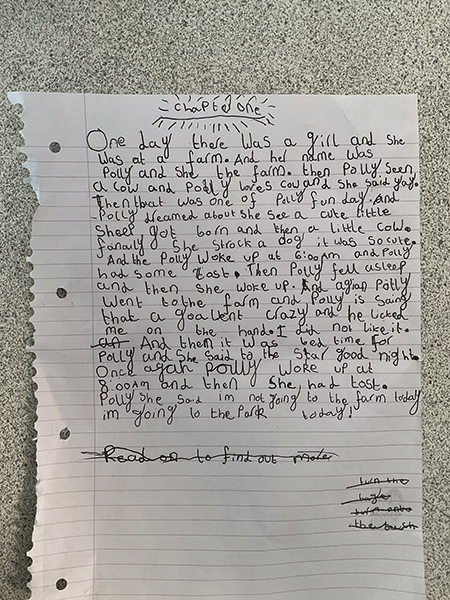 Chapter One
One day there was a girl and she
was at a farm. And her name was
Polly and she the farm. then Polly seen
a cow and Polly loves cow and she said yay.
Then that was one of Polly fun day. And
Polly dreamed about she see a cute little
sheep got born and then a little cow.
fanauly she strock a dog it was so cute.
And the Polly woke up at 6:00am and Polly
had some tost. Then Polly fell asleep
and then she woke up. And agian Polly
went to the farm and Polly is saing
that a goat went crazy and he licked
me on the hand. I did not like it.
And then it was bed time for
Polly and she said to the star good night.
Once agan Polly woke up at
8:00am and then she had tost.
Polly she said im not going to the farm today
im going to the Park today!
Read on to find out more
turn the
turn onto